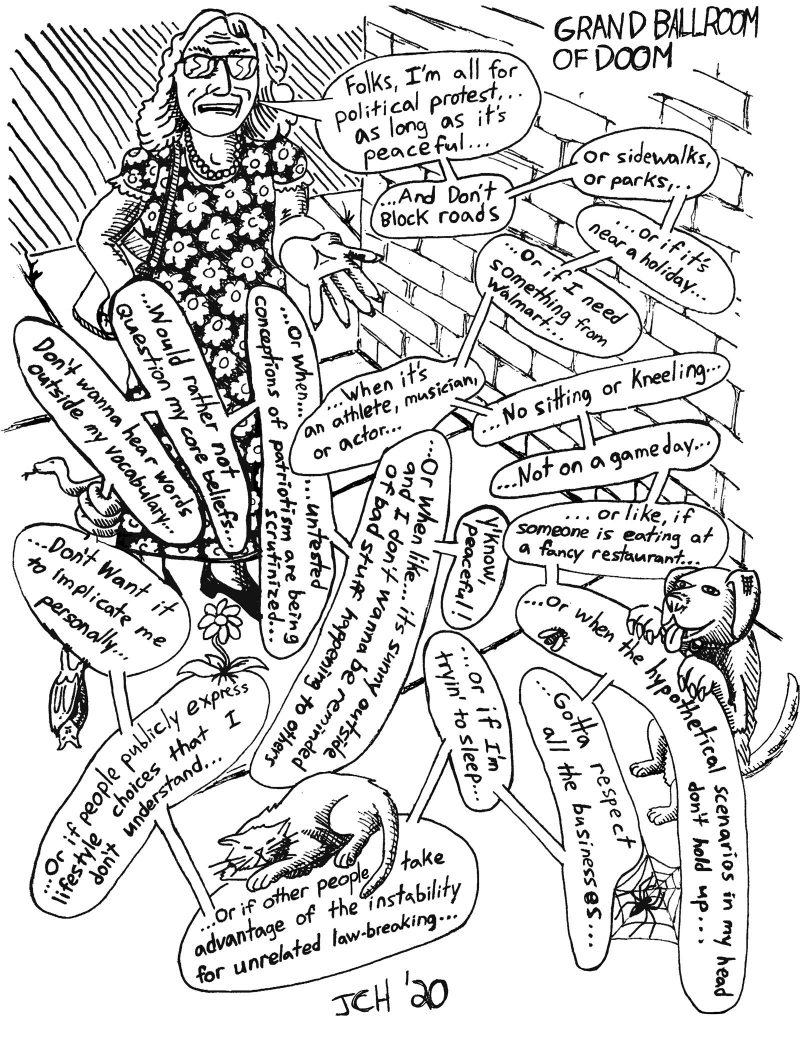 GRAND BALLROOM
OF DOOM
Folks, I'm all for
political protest,..
as long as it's
peaceful...
...And Don't
Block roads
Or sidewalks,
or parks,..
...or if it's
near a holiday...
...Or if I need
something from
Walmart...
...When it's
an athlete, musician,
or actor...
...No sitting or kneeling...
...Not on a gameday...
...or like, if
someone is eating at
a fancy restaurant...
...or when the hypothetical scenarios in my head
don't hold up...
...Gotta respect
all the businesses...
...or if I'm
tryin' to sleep...
...Or if other people take
advantage of the instability
for unrelated law-breaking...
...Or if people publicly express
lifestyle choices that I
don't understand...
...Don't want it
to implicate me
personally...
Don't wanna hear words
outside my vocabulary...
...Would rather not
question my core beliefs...
...Or when... ...untested
conceptions of patriotism are being
scrutinized...
...Or when like... it's sunny outside
and I don't wanna be reminded
of bad stuff happening to others
Y'know,
peaceful!
JCH '20